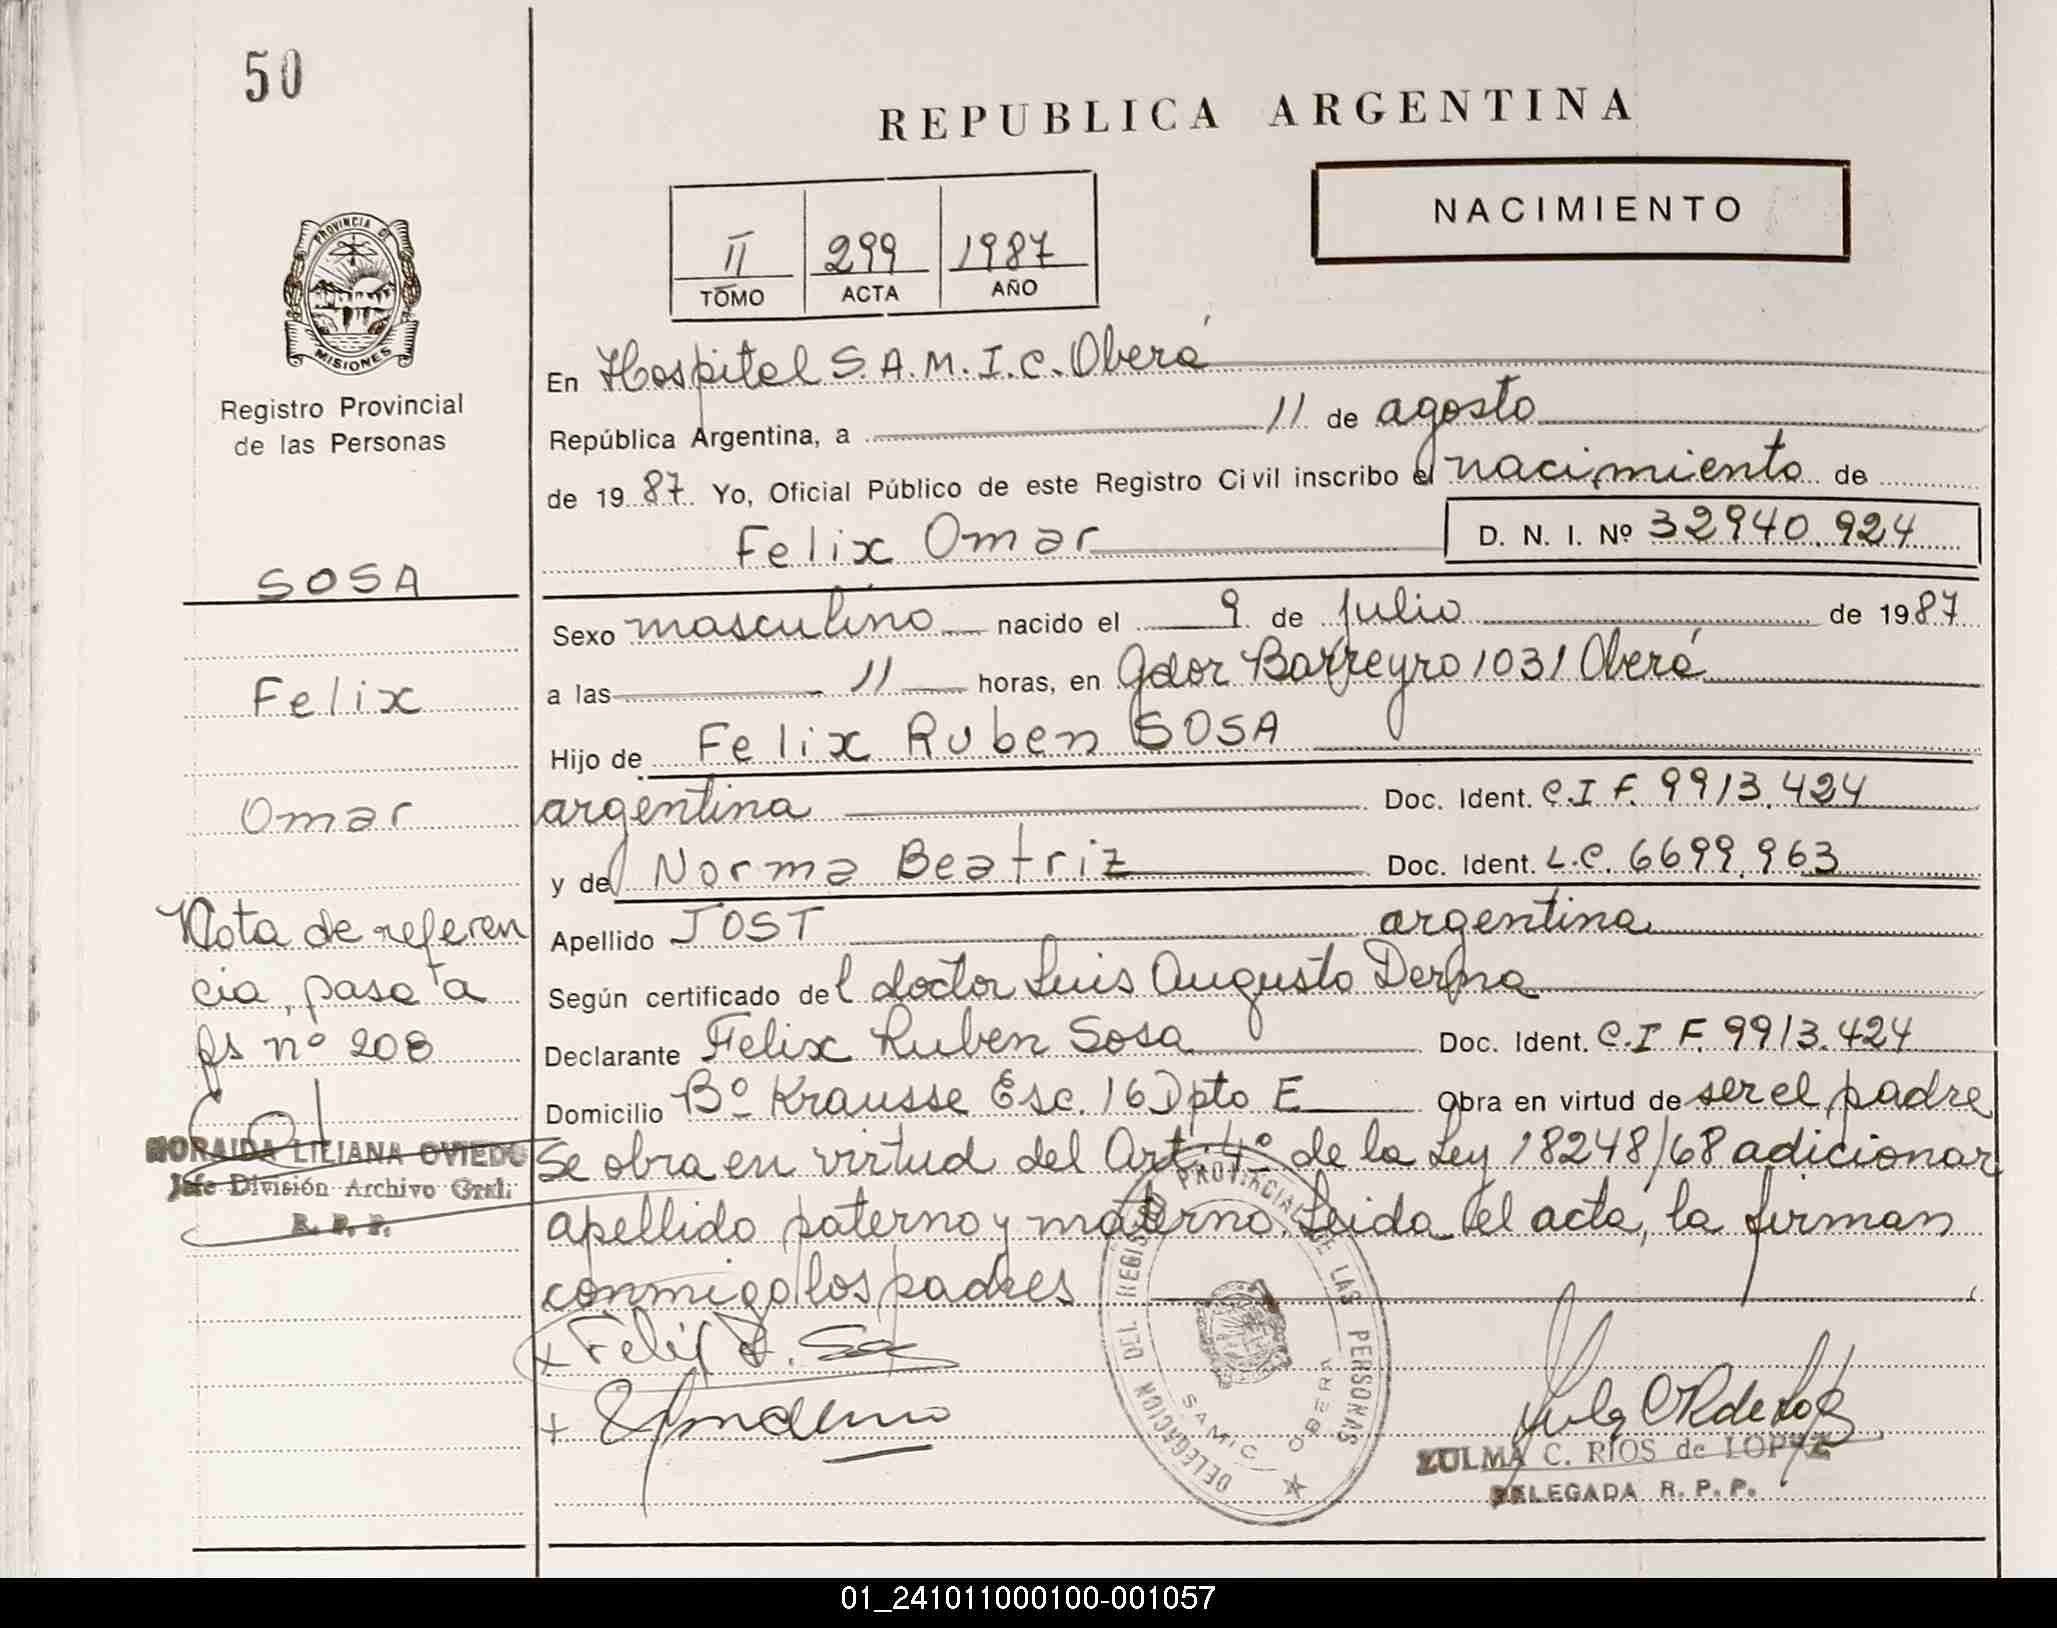 50
REPUBLICA ARGENTINA
NACIMIENTO
II 299 1987
TOMO ACTA AÑO
PROVINCIA DE
MISIONES
Registro Provincial
de las Personas
SOSA
Felix
Omar
Nota de referen
cia, pasa a
fs nº 208
NORAIDA LILIANA OVIEDO
Jefe División Archivo Gral.
R. P. P.
En Hospital S.A.M.I.C. Oberá
República Argentina, a 11 de agosto
de 1987. Yo, Oficial Público de este Registro Civil inscribo el nacimiento de
Felix Omar D. N. I. Nº 32940.924
Sexo masculino nacido el 9 de julio de 1987
a las 11 horas, en Gdor Barreyro 1031 Oberá
Hijo de Felix Ruben SOSA
argentina Doc. Ident. C.I F. 9913.424
y de Norma Beatriz Doc. Ident. L.C. 6699.963
Apellido JOST argentina
Según certificado del doctor Luis Augusto Derna
Declarante Felix Ruben Sosa Doc. Ident. C.I F. 9913.424
Domicilio Bº Krausse Esc. 16 Dpto E Obra en virtud de ser el padre
Se obra en virtud del Art. 4º de la Ley 18248/68 adicionar
apellido paterno y materno. Leida el acta, la firman
conmigo los padres
+ Felix R. Sosa
DELEGACION DEL REGISTRO PROVINCIAL DE LAS PERSONAS
SAMIC OBERA
ZULMA C. RIOS de LOPEZ
DELEGADA R. P. P.
01_241011000100-001057